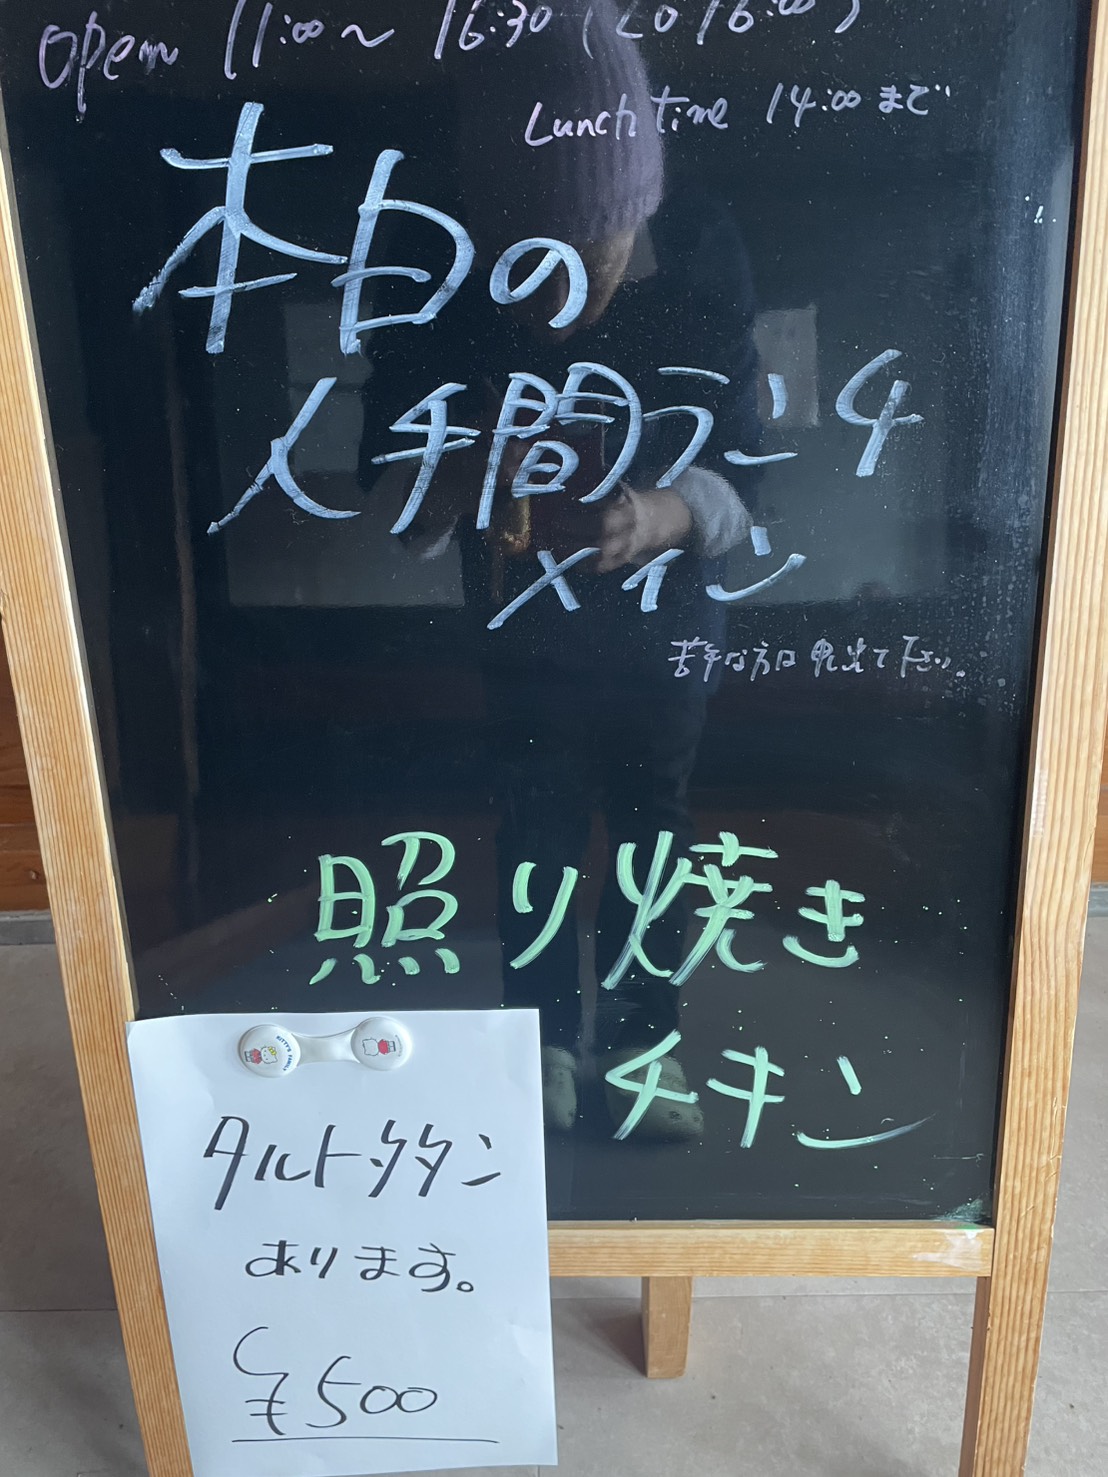 open 11:00~16:30(LO 16:00)
Lunch time 14:00まで
本日の
人手間ランチ
メイン
苦手な方は申出て下さい。
照り焼き
チキン
タルトタタン
あります。
¥500